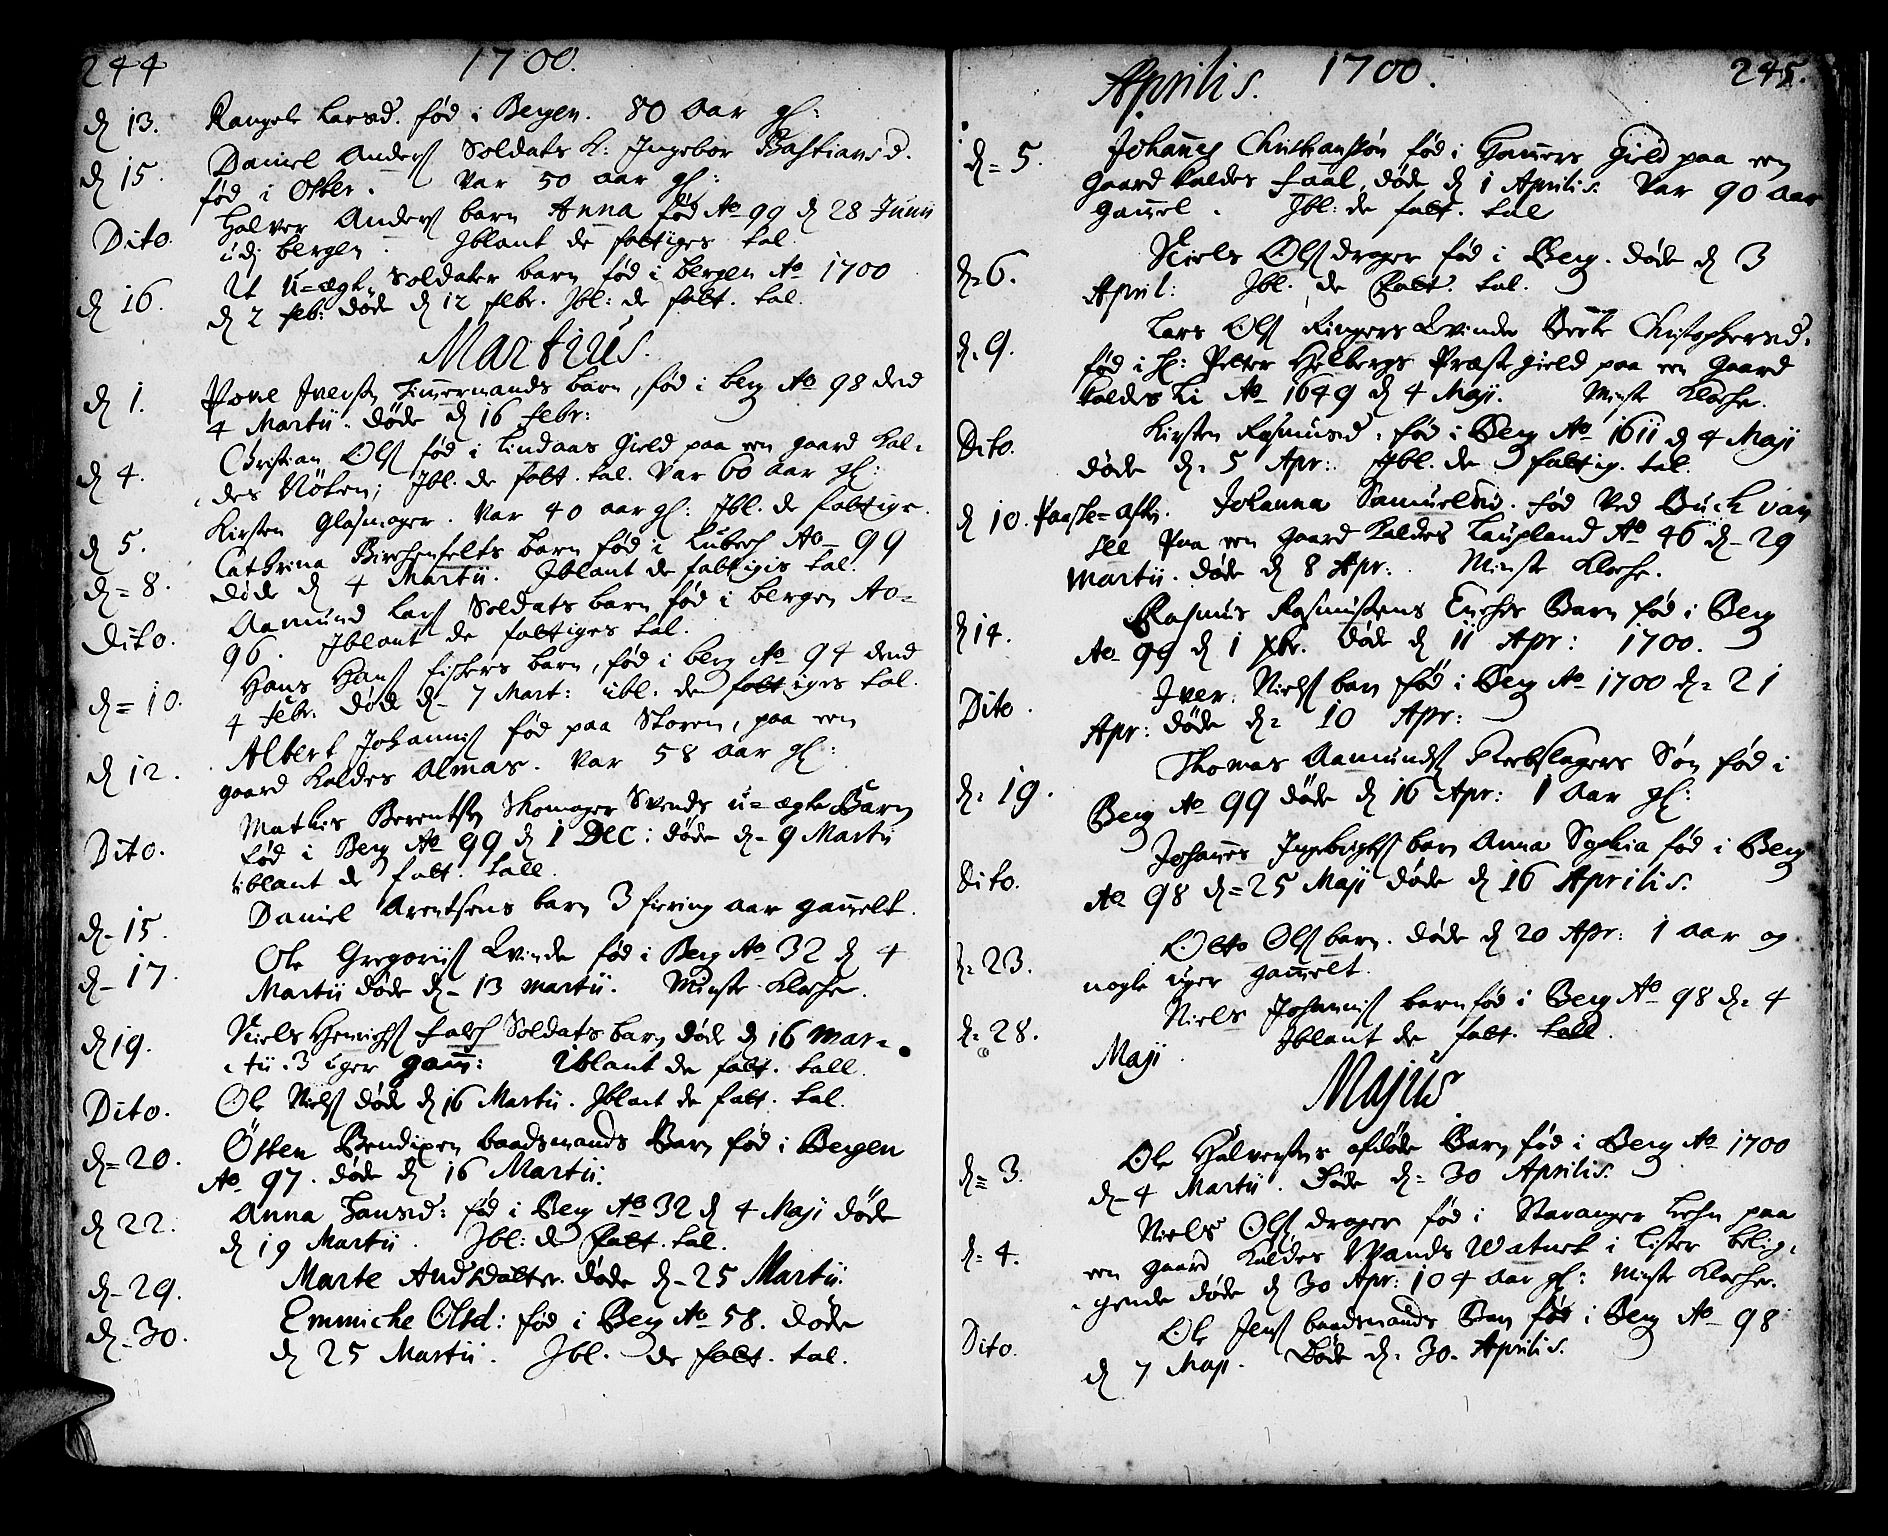 244 1700.
d 13. Rangele Larsd. fød i Bergen. 80 Aar gl:
d 15. Daniel Anders Soldats K: Ingebor Bastiansd.
fød i Oster. Var 50 aar gl:
Dito. Halver Anders barn Anna fød Ao 99 d 28 Junii
udj bergen. Iblant de fattiges tal.
d 16. Et U=ægte Soldater barn fød i bergen Ao 1700
d 2 feb: døde d 12 febr. Ibl: de fatt. tal.
Martius.
d 1. Povel Iversøn Timmermands barn, fød i berg Ao 98 dend
4 Martii. døde d 16 febr:
d 4. Christian Ols fød i Lindaas Gield paa een gaard kal=
des Nöten; Ibl. de fatt. tal. Var 60 aar gl:
d 5. Kirsten Glasmager. Var 40 aar gl: Ibl. de fattige.
d=8. Cathrina Birchenfelts barn fød i Lubech Ao 99
døde d 4 Martii. Iblant de fattigis tal.
Dito. Aamund Lars Soldats barn fød i bergen Ao=
96. Iblant de fattiges tal.
d=10. Hans Hans fiskers barn, fød i berg Ao 94 dend
4 febr. døde d 7 Mart: ibl. de fattiges tal.
d 12. Albert Johannis fød paa Storen, paa een
gaard kaldes Almas. Var 58 aar gl:
Dito. Mathis Berentsøn Skomager Svends u=ægte Barn
fød i Berg Ao 99 d 1 Dec: døde d 9 Martii
iblant de fatt. tall.
d 15. Daniel Arentsens barn 3 fiering aar gamelt.
d 17. Ole Gregoriis Qvinde fød i Berg Ao 32 d 4
Martii døde d 13 martii. Minste Klocke.
d 19. Niels Henrichs falch Soldats barn døde d 16 mar=
tii. 3 Uger gam: Iblant de fatt. tall.
Dito. Ole Niels døde d 16 Martii. Iblant de fatt. tal.
d=20. Östen Bendixen baadsmands Barn fød i Bergen
Ao 97. døde d 16 Martii.
d 22. Anna Hansd: fød i Berg Ao 32 d 4 Maji døde
d 19 Martii. Ibl: de fatt. tal.
d 29. Marte Andsdatter. døde d 25 Martii.
d 30. Emmiche Olsd: fød i Berg Ao 58. døde
d 25 Martii. Ibl. de fatt. tal.
Aprilis. 1700. 245.
d=5. Johannes Christiansøn fød i Hammers Gield paa een
gaard kaldes faal, døde d 1 Aprilis. Var 90 aar
gammel. Ibl: de fatt. tal
d=6. Niels Ols drager fød i Berg. døde d 3
April: Ibl. de fatt. tal.
d. 9. Lars Ols Ringers Qvinde Berte Christophersd.
fød i H: Petter Hølbergs Præstgield paa een gaard
kaldes Li Ao 1649 d 4 Maji. Minste Klocke.
Dito. Kirsten Rasmusd. fød i Berg Ao 1611 d 4 Maji
døde d= 5 Apr: Ibl. de fattig. tal.
d 10. Paaske=aften. Johanna Samuelsd. fød Ved
paa een gaard kaldes Laupland Ao 46 d 29
Martii. døde d 8 Apr: Minste Klocke.
d 14. Rasmus Rasmussens Enches Barn fød i Berg
Ao 99 d 1 xbr. døde d 11 Apr: 1700.
Dito. Iver Niels barn fød i Berg Ao 1700 d= 21
Apr: døde d= 10 Apr:
d= 19. Thomas Aamunds Rebslagers Søn fød i
Berg Ao 99 døde d 16 Apr: 1 Aar gl:
Dito. Johannes Ingebrigts barn Anna Sophia fød i Berg
Ao 98 d=25 Maji døde d 16 Aprilis.
d= 23. Otto Ols barn. døde d 20 Apr: 1 Aar og
nogle uger gammelt.
d= 28. Niels Johannis barn fød i Berg Ao 98 d= 4
Maji. Iblant de fatt. tall.
Majus
d= 3. Ole Halversens afdøde Barn fød i Berg Ao 1700
d 4 Martii. Døde d= 30 Aprilis.
d= 4. Niels Ols drager fød i Stavanger Lehn paa
een gaard kaldes Vands i Lister belig=
gende døde d 30 Apr: 104 aar gl: Minste Klocke.
Dito. Ole Jens baadsmands Barn fød i Berg Ao 98
d 7 Maji. Døde d= 30. Aprilis.